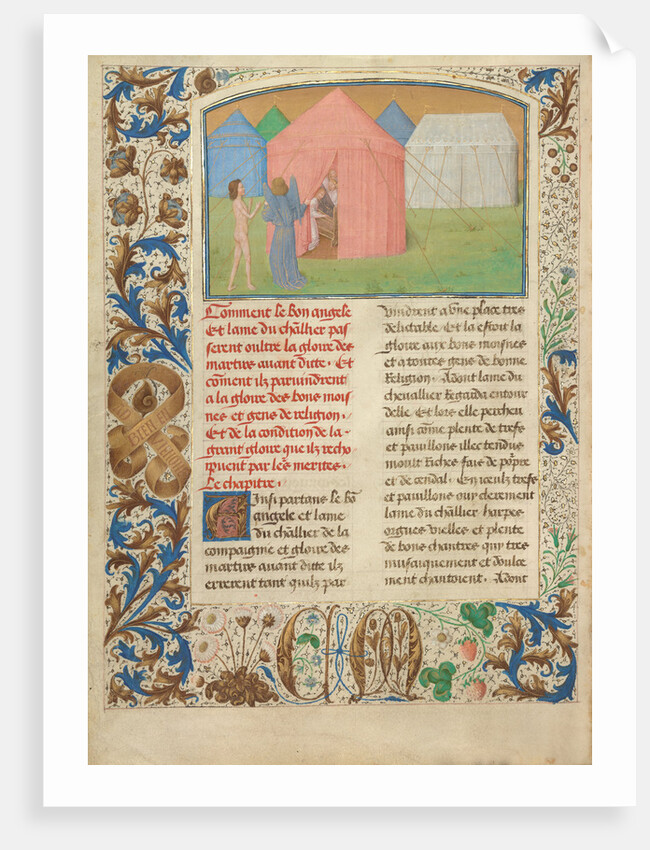 Comment le bon angele
Et lame du chl̃lier pas
serent oultre la gloire des
martirs auant ditte. Et
cõment ilz paruindrent
a la gloire des bons mois
nes et gens de religion.
Et de la condition de la
grant gloire que ilz recho
ipuent par leñs merites.
Le chapitre.
Ainsi partans le bõ
angele et lame
du chl̃lier de la
compaignie et gloire des
martirs auant ditte ilz
errerent tant quilz par
uindrent a vne place tres
delitable. Et la estoit la
gloire aux bons moisnes
et a toutes gens de bonne
Religion. Adont lame du
cheuallier Regarda entour
delle. Et lors elle percheu
ainsi cõme plente de trefs
et pauillons illec tendus
moult Riches fais de põpre
et de cendal. En iceulx trefs
et pauillons ouy clerement
lame du chl̃lier harpes
orgues vielles et plente
de bons chantres qui tres
musicquement et doulce
ment chantoient. Adont
BIEN EN
CM